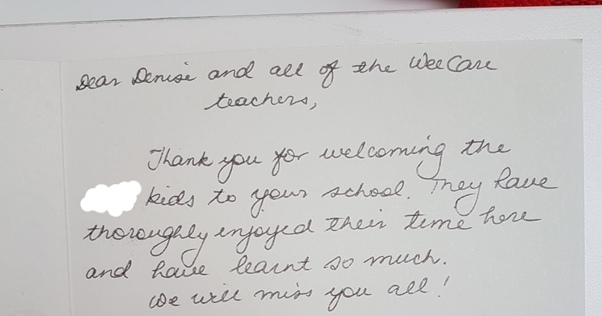 Dear Denise and all of the WeeCare
teachers,
Thank you for welcoming the
kids to your school. They have
thoroughly enjoyed their time here
and have learnt so much.
We will miss you all!